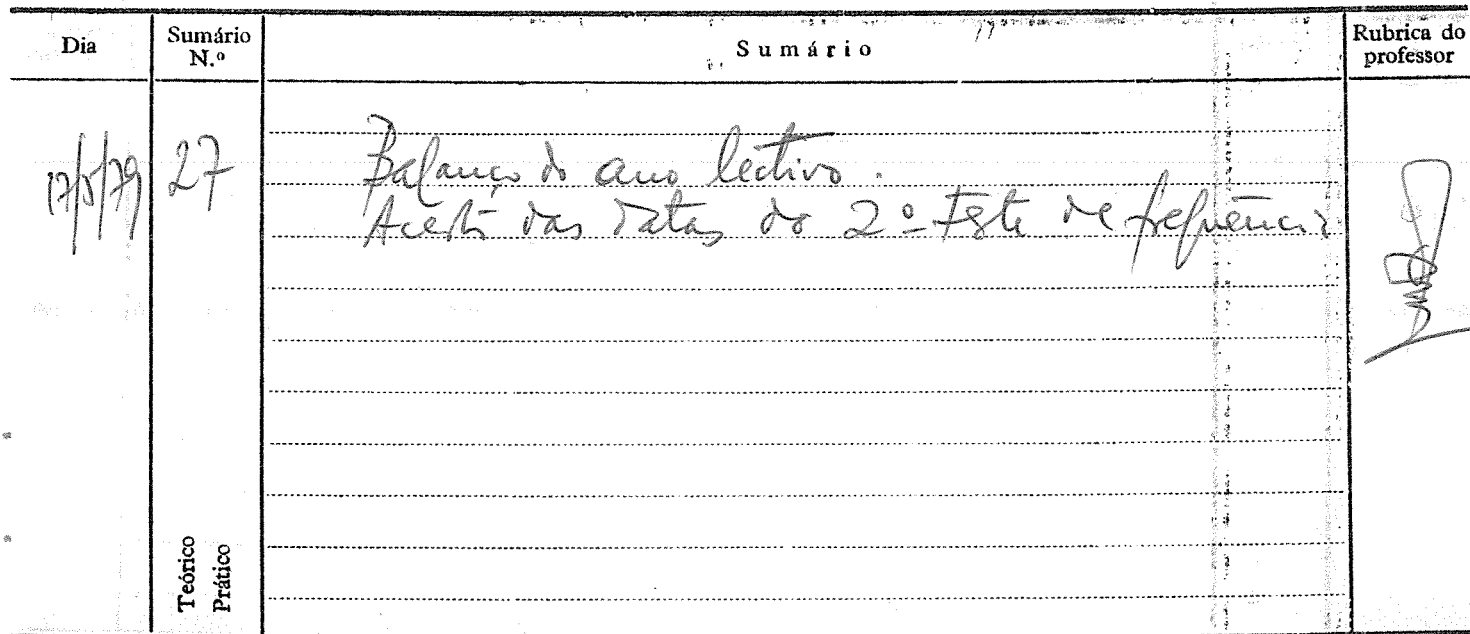 Dia
Sumário N.º
Sumário
Rubrica do professor
17/5/79
27
Balanço do ano lectivo.
das datas do 2º Teste de frequência
Teórico
Prático